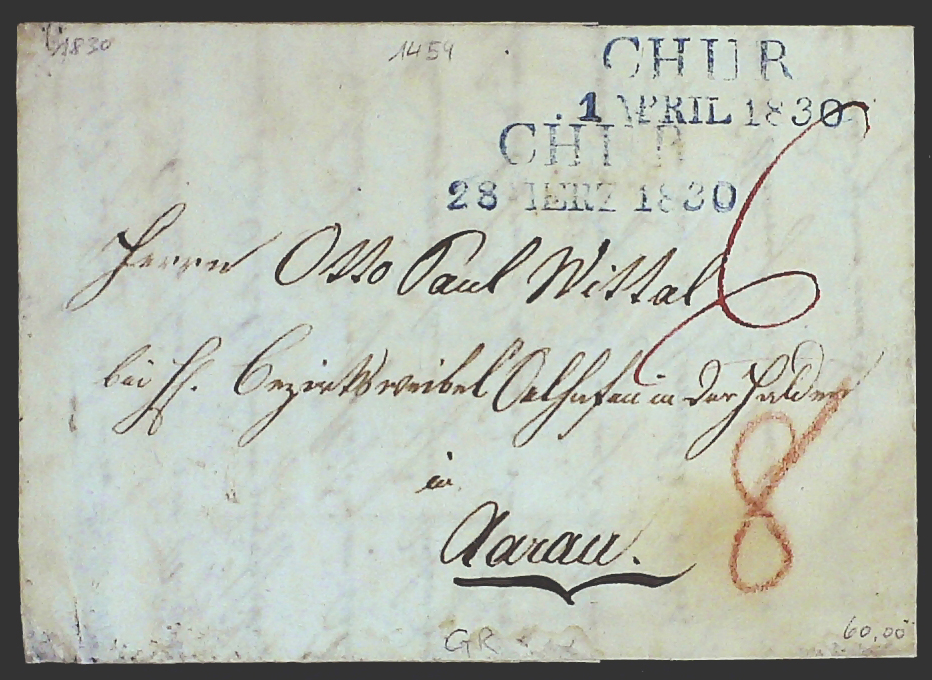 1830
1459
CHUR
1 APRIL 1830
CHUR
28 MERZ 1830
Herrn Otto Paul Wittal
bei H. Bezirksweibel Oelhafen in der Halden
in
Aarau.
8
GR
60,00